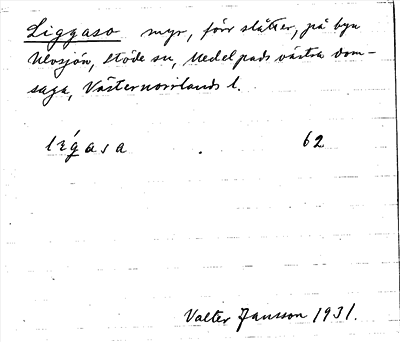 Liggaso myr, förr slåtter, på byn
Ulvsjön, Stöde sn, Medelpads västra dom-
saga, Västernorrlands l.
lígasa . 62
Valter Jansson 1931.